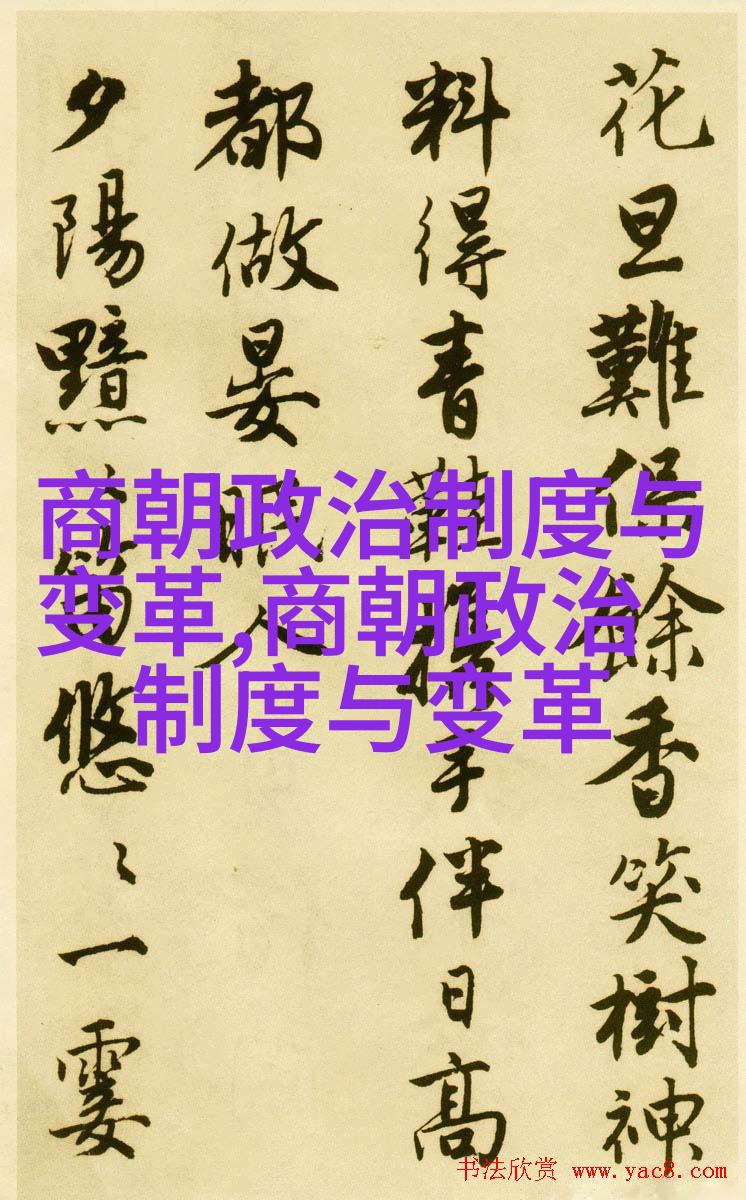 花旦難餘香笑樹神
料得青鞋攜手伴日高
都做晏眠人
夕陽黯〻笛悠〻一霎
商朝政治制度与
变革,商朝政治
制度与变革
书法欣赏 www.yac8.com